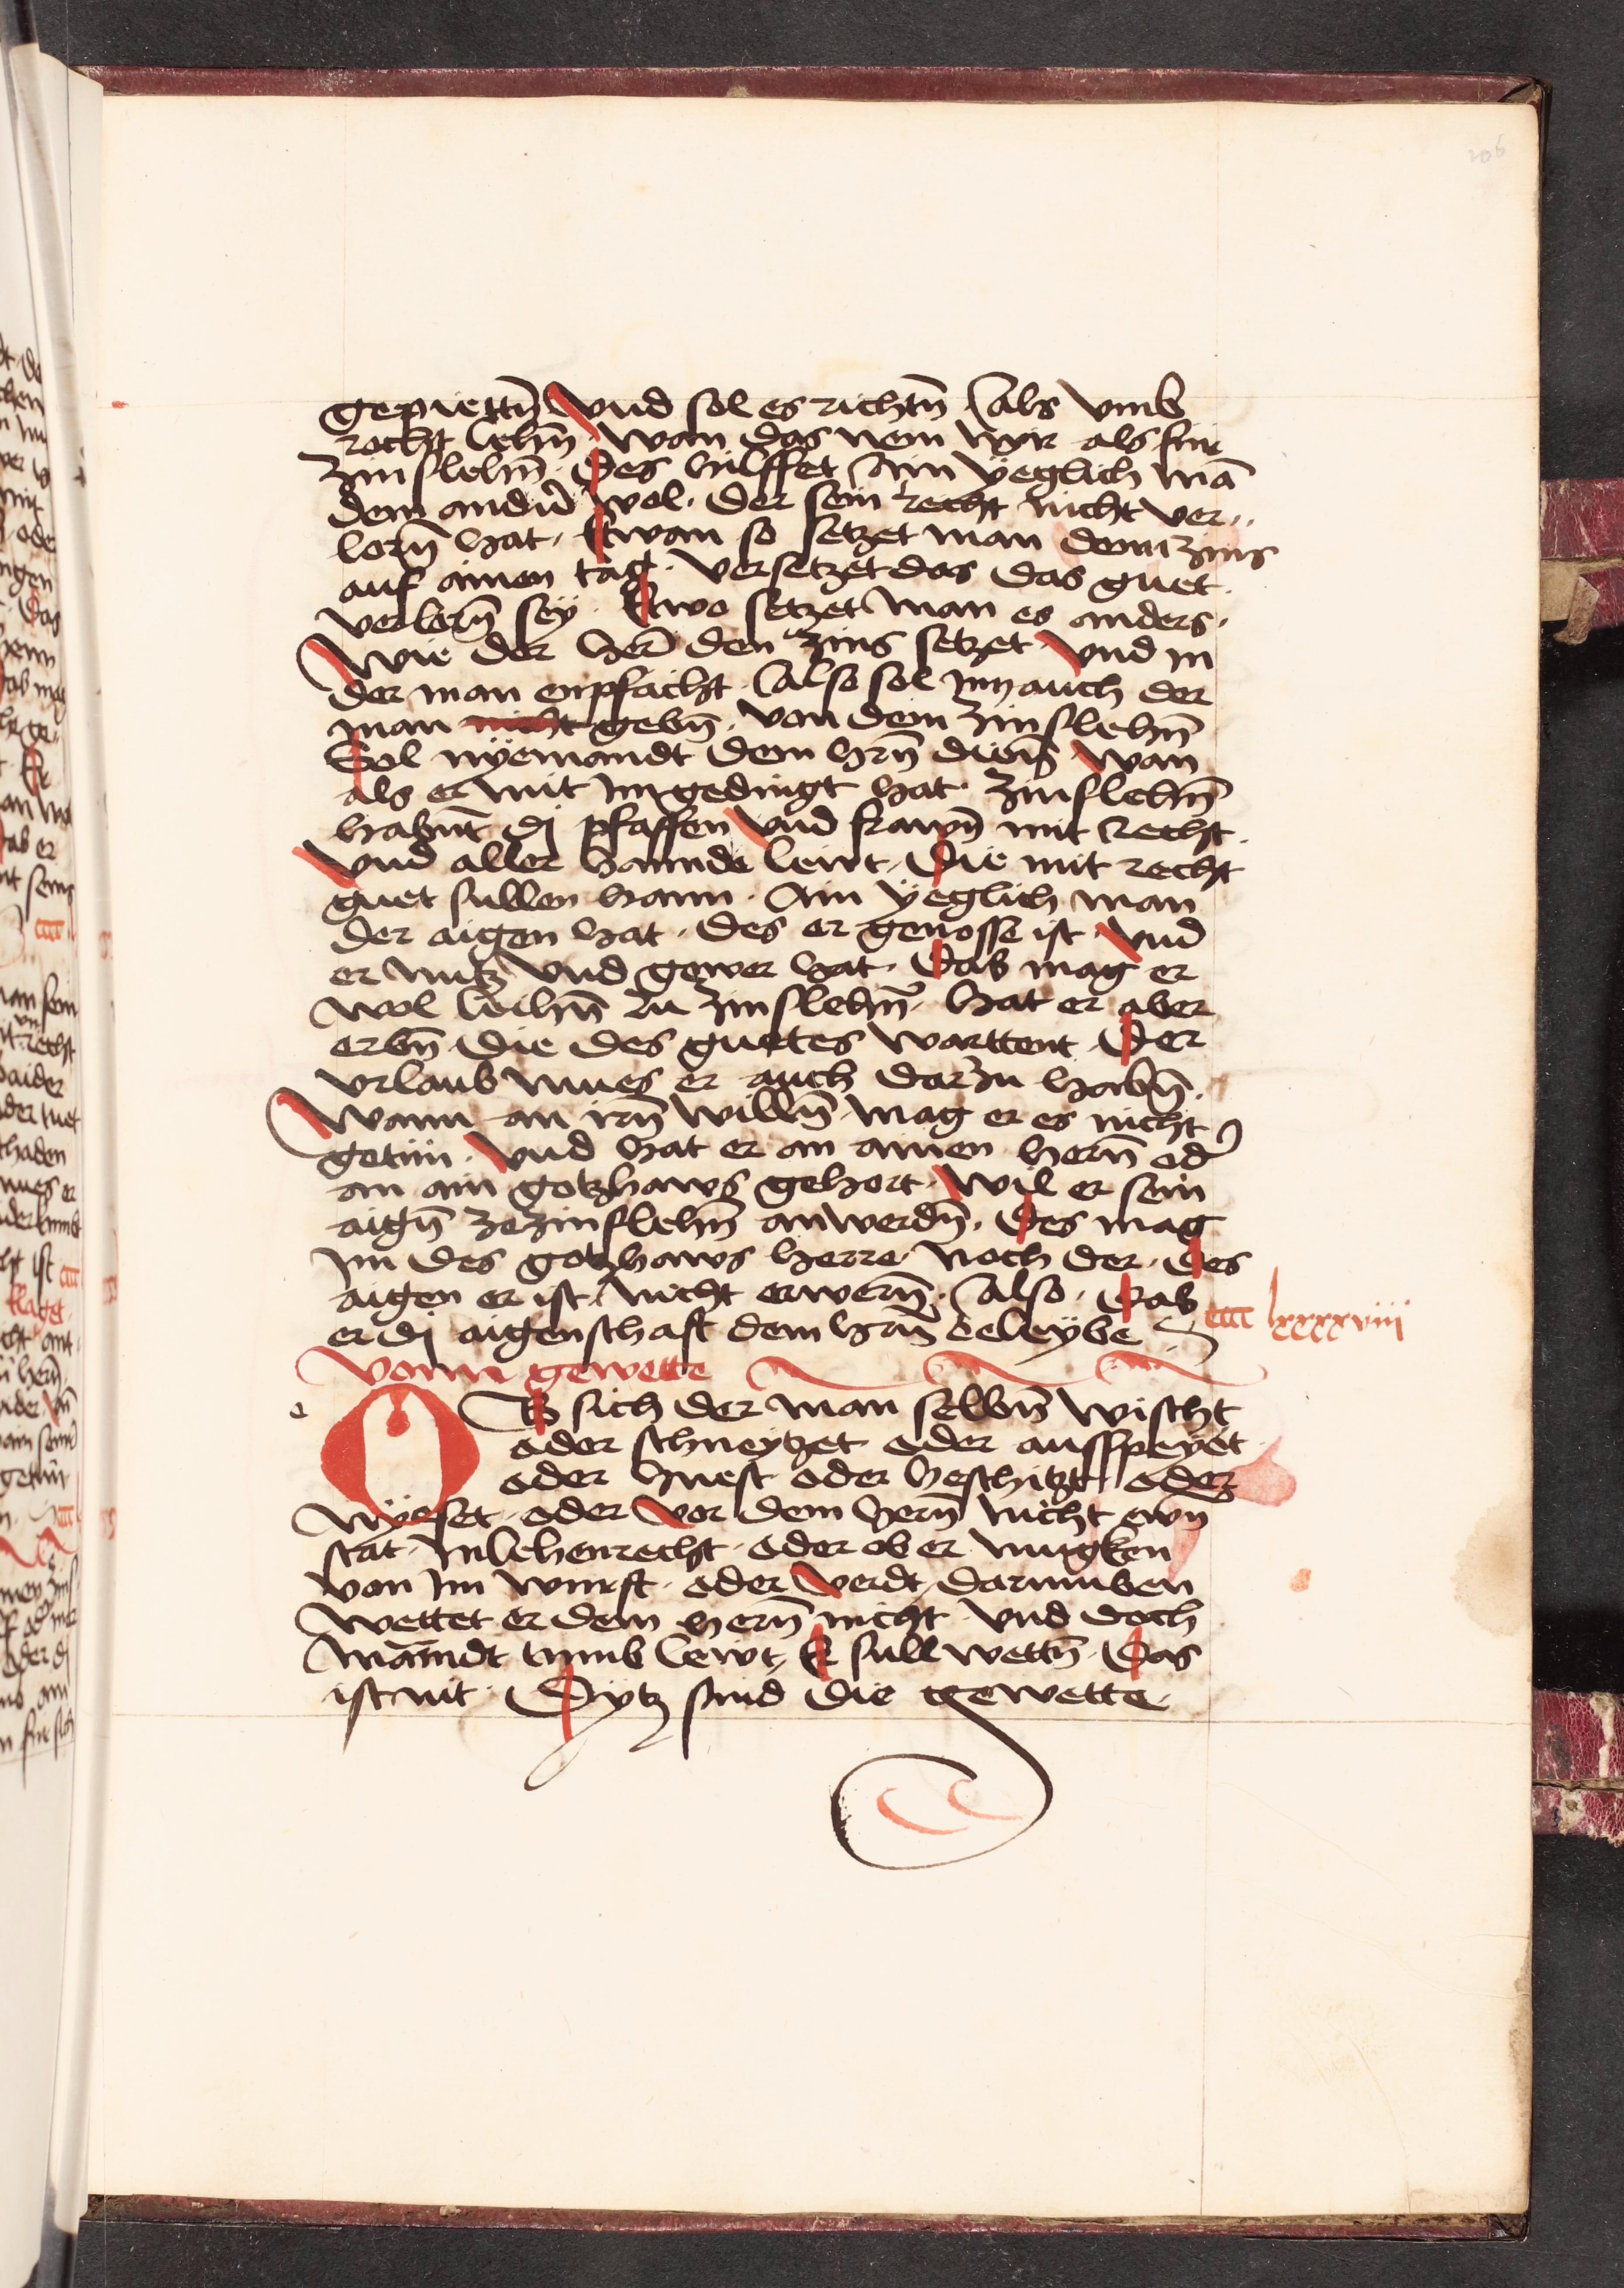 206
gepiettn̄ Vnd sol es richtn̄ Als vmb
recht lehn̄ · wan das nem wir als fur
zinslehn̄ · Des hilffet Ain yeglich mā
dem andn̄ wol · der sein recht nicht ver,,
lorn̄ hat · Etwan so setzet man dem zins
auf ainen tag · versetzet das das guet
verlorn̄ sey · Etwo setzet man es anders ·
Wie der her̄ den zins setzet · Vnd in
der man enpfächt · Also sol im auch der
man nicht gebn̄ · von dem zinslehn̄
Sol nyemandt dem hrn̄ dien̄ wan
als er mit im gedingt hat · zinslehn̄
habnt dj pfaffen Vnd frawn̄ mit recht ·
Vnd aller hannde lewt · Die mit recht
guet sullen hann · Ain yeglich man
der aigen hat · des er genosse ist · Vnd
er nutz vnd gewer hat · Das mag er
wol leihn̄ zu zinslehn̄ · hat er aber
erbn̄ die des guetes warttent · Der
vrlaub mues er auch darzu habn̄ ·
Wann an irn̄ willn̄ mag er es nicht
getun · Vnd hat er an ainen hern̄ od
an ain gotzhaws gehort · Wil er sein
aign̄ zezinslehn̄ anwerdn̄ · Des mag
im des gotzhaws herre · noch der · des
aigen er ist · nicht erwern̄ · Also · Das
er dj aigenschaft dem hrn̄ beleybe
cccc lxxxxviii
Vonn gewette
OB sich der man selbn̄ wischt
oder schneytzet oder ausspeyet
oder huest oder beschitzt oder
nyeset · oder vor dem hern̄ nicht ewn
stat · In lehenrecht · oder ob er mugken
von im wurft · oder verdt, darumben
wettet er dem hern̄ nicht · vnd doch
mainndt tumb lewt, Er sull wettn̄ · Das
ist nit · Dytz sind die gewette ·